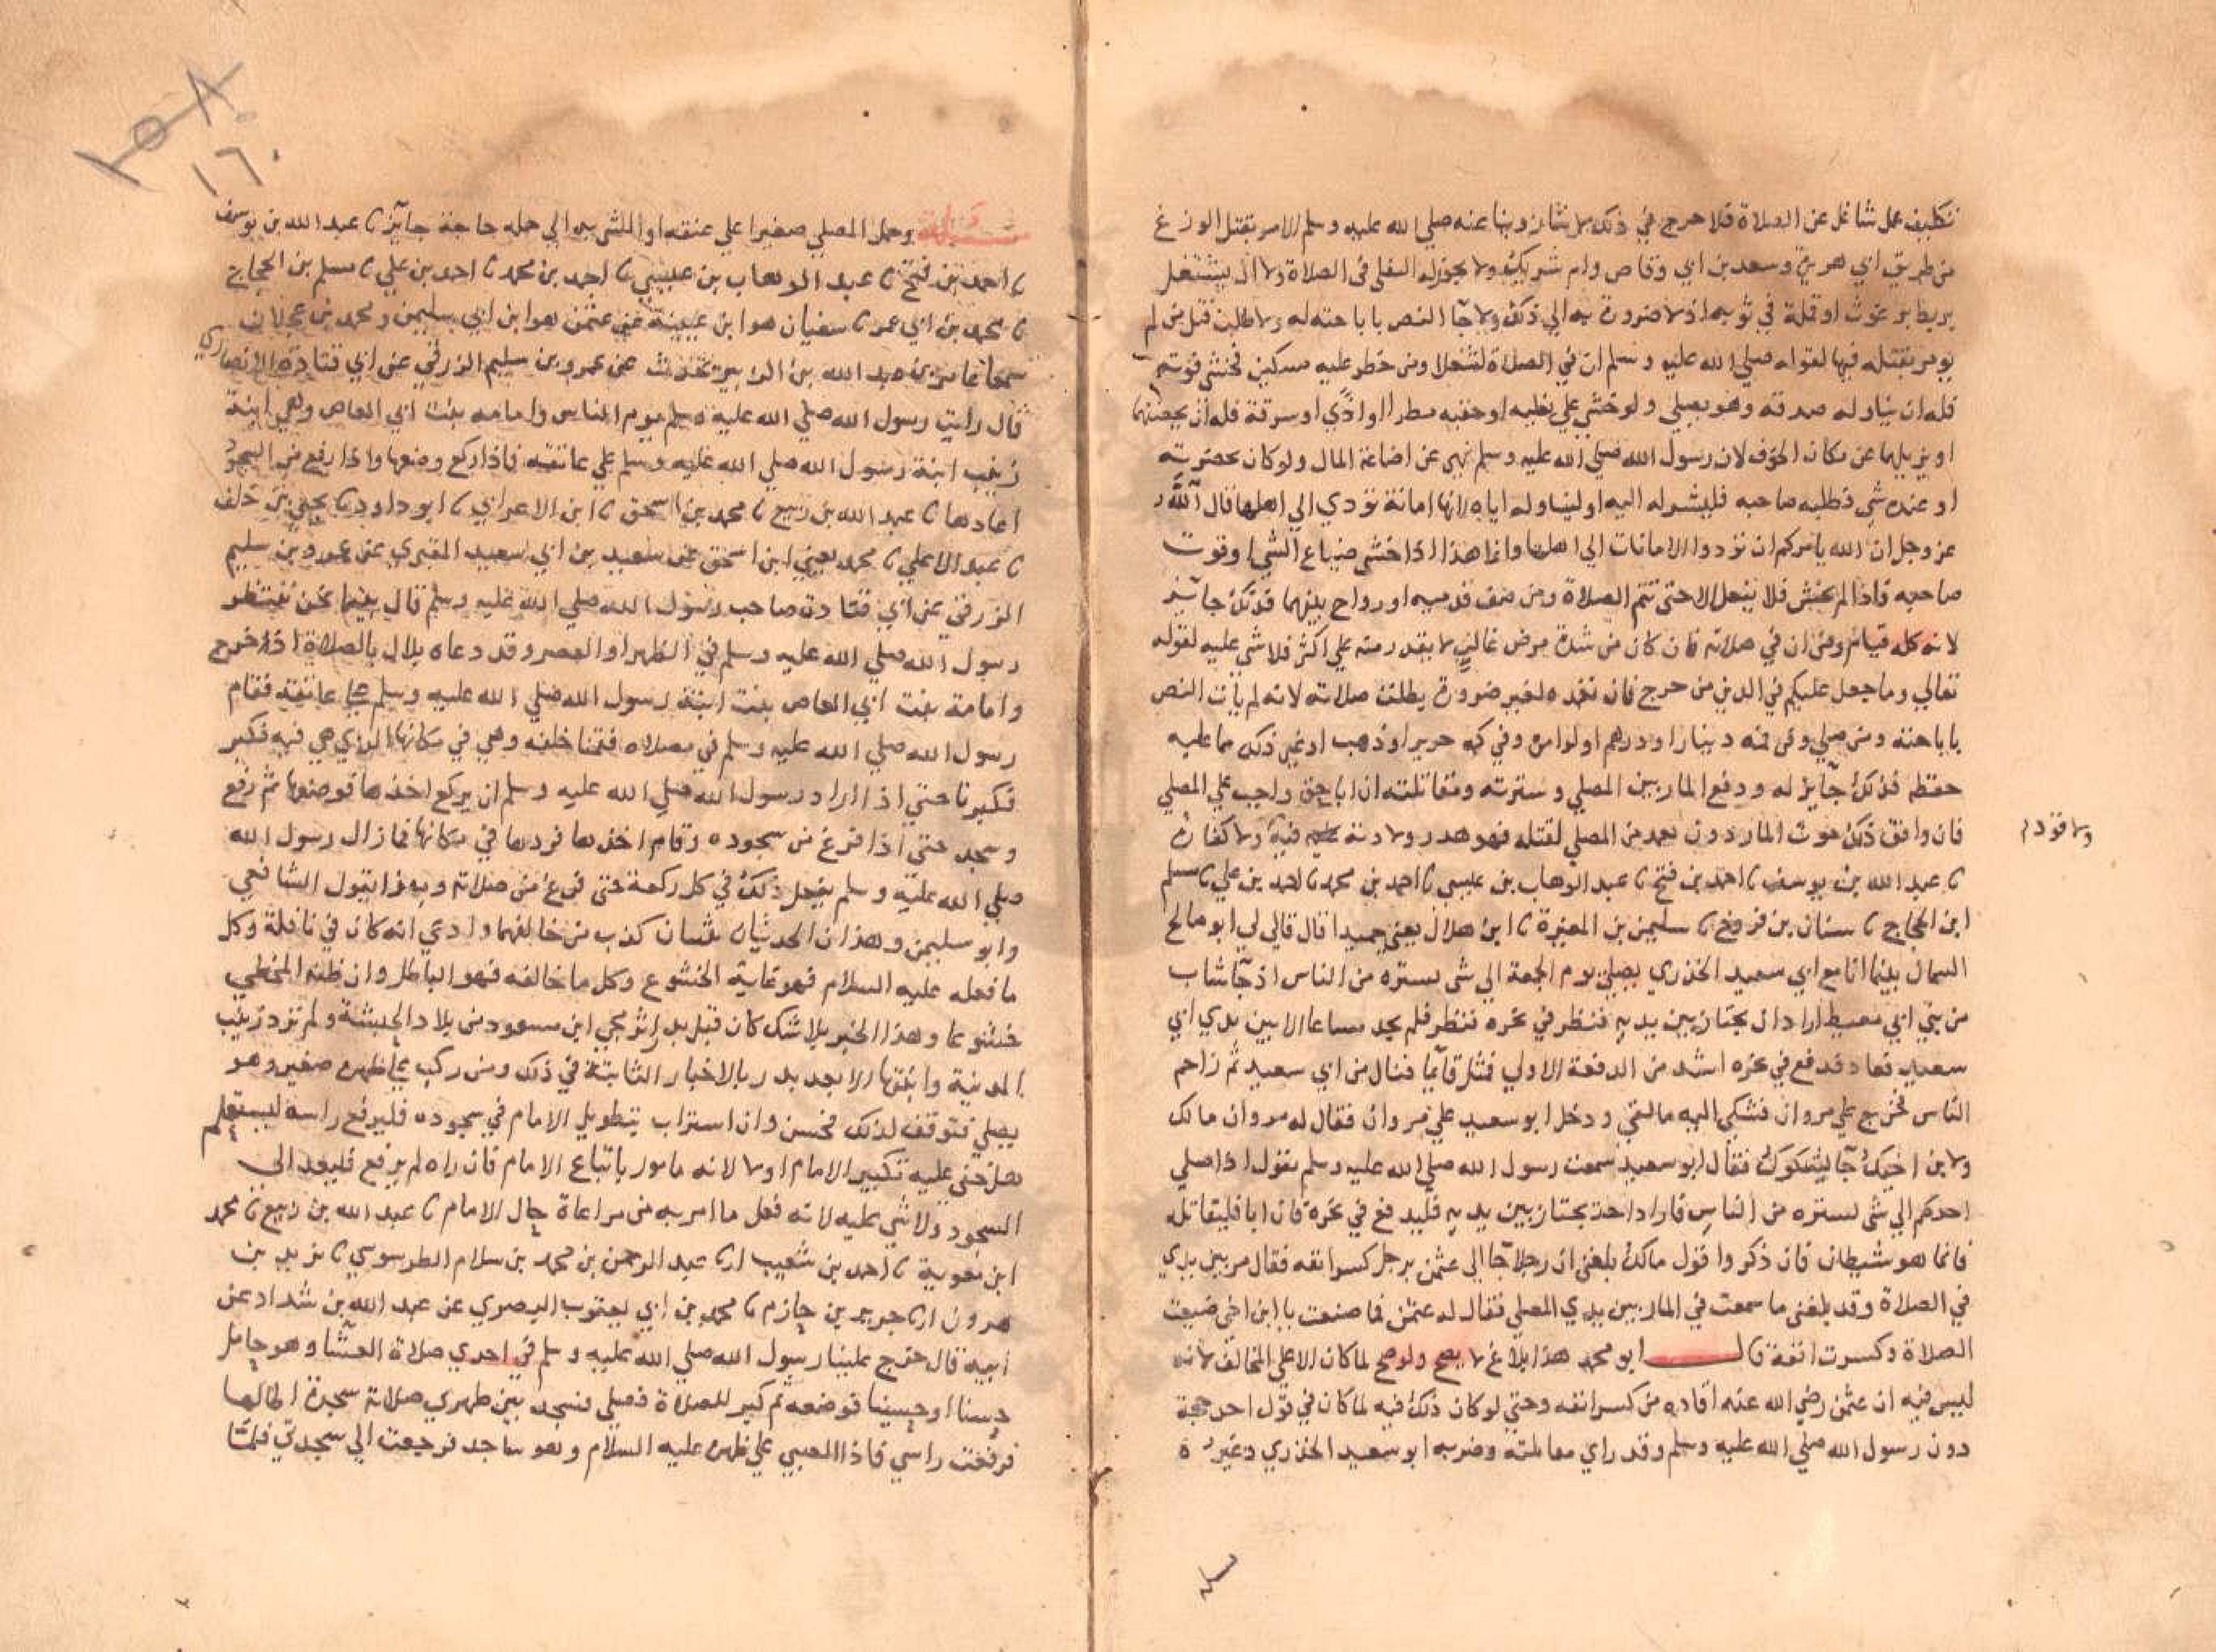 تكليف عمل شاغل عن الصلاة فلا حرج في ذلك عنه صلي الله عليه وسلم الامر بقتل الوزغ
من طريق ابي هريرة وسعد بن ابي وقاص وام شريك ولا يجوز له التفلي في الصلاة ولا ان يشتغل
بربط برغوث او قملة في ثوبه اذ لا ضرورة به الي ذلك ولا جا النص باباحته له ولا طلب قتل من لم
يومر بقتله فيها لقوله صلي الله عليه وسلم ان في الصلاة لشغلا ومن خطر عليه مسكين فخشي فوته
فله ان يناوله صدقة وهو يصلي ولو خشي علي نعليه او خفيه مطرا او اذي او سرقة فله ان يحصنهما
او يزيلهما عن مكان الخوف لان رسول الله صلي الله عليه وسلم نهي عن اضاعة المال ولو كان بحضرته
او عنده شي فطلبه صاحبه فليشر له اليه او ليناوله اياه لانها امانة تودي الي اهلها قال الله
عز وجل ان الله يامركم ان تودوا الامانات الي اهلها وانما هذا اذا خشي ضياع الشي او فوت
صاحبه فاذا لم يخش فلا يفعل الا حتي تتم الصلاة ومن صف قدميه او راوح بينهما فذلك جائز
لانه كله قيام ومن ان في صلاته فان كان من شدة مرض غالب لا يقدر منه علي اكثر فلا شي عليه لقوله
تعالي وما جعل عليكم في الدين من حرج فان تعمده لغير ضرورة بطلت صلاته لانه لم يات النص
باباحته ومن صلي وفي فمه دينار او درهم او لولو وفي كمه حرير او ذهب او غير ذلك مما عليه
حفظه فذلك جائز له ودفع المار بين المصلي وسترته ومقاتلته ان ابا حق واجب علي المصلي
فان وافق ذلك موت المار دون تعمد من المصلي لقتله فهو هدر ولا دية فيه ولا كفارة
ولا قود
نا عبد الله بن يوسف نا احمد بن فتح نا عبد الوهاب بن عيسي نا احمد بن محمد نا احمد بن علي نا مسلم
ابن الحجاج نا سنان بن فروخ نا سليمن بن المغيرة نا ابن هلال يعني حميدا قال قال لي ابو صالح
السمان بينما انا مع ابي سعيد الخدري يصلي يوم الجمعة الي شي يستره من الناس اذ جا شاب
من بني ابي معيط اراد ان يجتاز بين يديه فنظر في نحره فنظر فلم يجد مساغا الا بين يدي ابي
سعيد فعاد فدفع في نحره اشد من الدفعة الاولي فمثل قائما فنال من ابي سعيد ثم زاحم
الناس فخرج علي مروان فشكي اليه ما لقي ودخل ابو سعيد علي مروان فقال له مروان مالك
ولابن اخيك جا يشكوك فقال ابو سعيد سمعت رسول الله صلي الله عليه وسلم يقول اذا صلي
احدكم الي شي يستره من الناس فاراد احد يجتاز بين يديه فليدفع في نحره فان ابا فليقاتله
فانما هو شيطان فان ذكروا قول مالك بلغني ان رجلا جا الي عثمن برجل كسر انفه فقال مر بين يدي
في الصلاة وقد بلغني ما سمعت في المار بين يدي المصلي فقال له عثمن فما صنعت يا ابن اخي ضيعت
الصلاة وكسرت انفه قال ابو محمد هذا بلاغ لا يصح ولو صح لما كان الا علي المخالف لانه
ليس فيه ان عثمن رضي الله عنه اقاده من كسر انفه وحتي لو كان ذلك فيه لما كان في قول احد حجة
دون رسول الله صلي الله عليه وسلم وقد راي مقاتلته وضربه ابو سعيد الخدري وغيره
١٥٨
١٦٠
مسالة وحمل المصلي صغيرا علي عنقه او الشي به الي حمله حاجة جايز نا عبد الله بن يوسف
نا احمد بن فتح نا عبد الوهاب بن عيسي نا احمد بن محمد نا احمد بن علي نا مسلم بن الحجاج
نا محمد بن ابي عمر نا سفيان هو ابن عيينة عن عثمن هو ابن ابي سليمن ومحمد بن عجلان
سمعا عامر بن عبد الله بن الزبير يحدث عن عمرو بن سليم الزرقي عن ابي قتادة الانصاري
قال رايت رسول الله صلي الله عليه وسلم يوم الناس وامامه بنت ابي العاص وهي ابنة
زينب ابنة رسول الله صلي الله عليه وسلم علي عاتقه فاذا ركع وضعها واذا رفع من السجود
اعادها نا عبد الله بن ربيع نا محمد بن اسحق نا ابن الاعرابي نا ابو داود نا يحيي بن خلف
نا عبد الاعلي نا محمد يعني ابن اسحق عن سعيد بن ابي سعيد المقبري عن عمرو بن سليم
الزرقي عن ابي قتادة صاحب رسول الله صلي الله عليه وسلم قال بينما نحن ننتظر
رسول الله صلي الله عليه وسلم في الظهر او العصر وقد دعاه بلال بالصلاة اذ خرج
وامامة بنت ابي العاص بنت ابنة رسول الله صلي الله عليه وسلم علي عاتقه فقام
رسول الله صلي الله عليه وسلم في مصلاه فقمنا خلفه وهي في مكانها الذي هي فيه فكبر
فكبرنا حتي اذا اراد رسول الله صلي الله عليه وسلم ان يركع اخذها فوضعها ثم ركع
وسجد حتي اذا فرغ من سجوده وقام اخذها فردها في مكانها فما زال رسول الله
صلي الله عليه وسلم يفعل ذلك في كل ركعة حتي فرغ من صلاته وبهذا يقول الشافعي
وابو سليمن وهذان الحديثان يثبتان كذب من خالفهما وادعي انه كان في نافلة وكل
ما فعله عليه السلام فهو غاية الخشوع وكل ما خالفه فهو الباطل وان ظنه المخطي
خشوعا وهذا الخبر بلا شك كان قبل بدر اثر مجي ابن مسعود من بلاد الحبشة ولم ترد زينب
المدينة وابنتها الا بعد بدر بالاخبار الثابتة في ذلك ومن ركب علي ظهره صغير وهو
يصلي فتوقف لذلك فحسن وان استراب بتطويل الامام في سجوده فليرفع راسه ليستعلم
هل خفي عليه تكبير الامام او لا لانه مامور باتباع الامام فان راه لم يرفع فليعد الي
السجود ولا شي عليه لانه فعل ما امر به من مراعاة حال الامام نا عبد الله بن ربيع نا محمد
ابن معوية نا احمد بن شعيب انا عبد الرحمن بن محمد بن سلام الطرسوسي نا يزيد بن
هرون انا جرير بن حازم نا محمد بن ابي يعقوب البصري عن عبد الله بن شداد عن
ابيه قال خرج علينا رسول الله صلي الله عليه وسلم في احدي صلاة العشا وهو حامل
حسنا او حسينا فوضعه ثم كبر للصلاة فصلي فسجد بين ظهري صلاته سجدة اطالها
فرفعت راسي فاذا الصبي علي ظهره عليه السلام وهو ساجد فرجعت الي سجدتي فلما